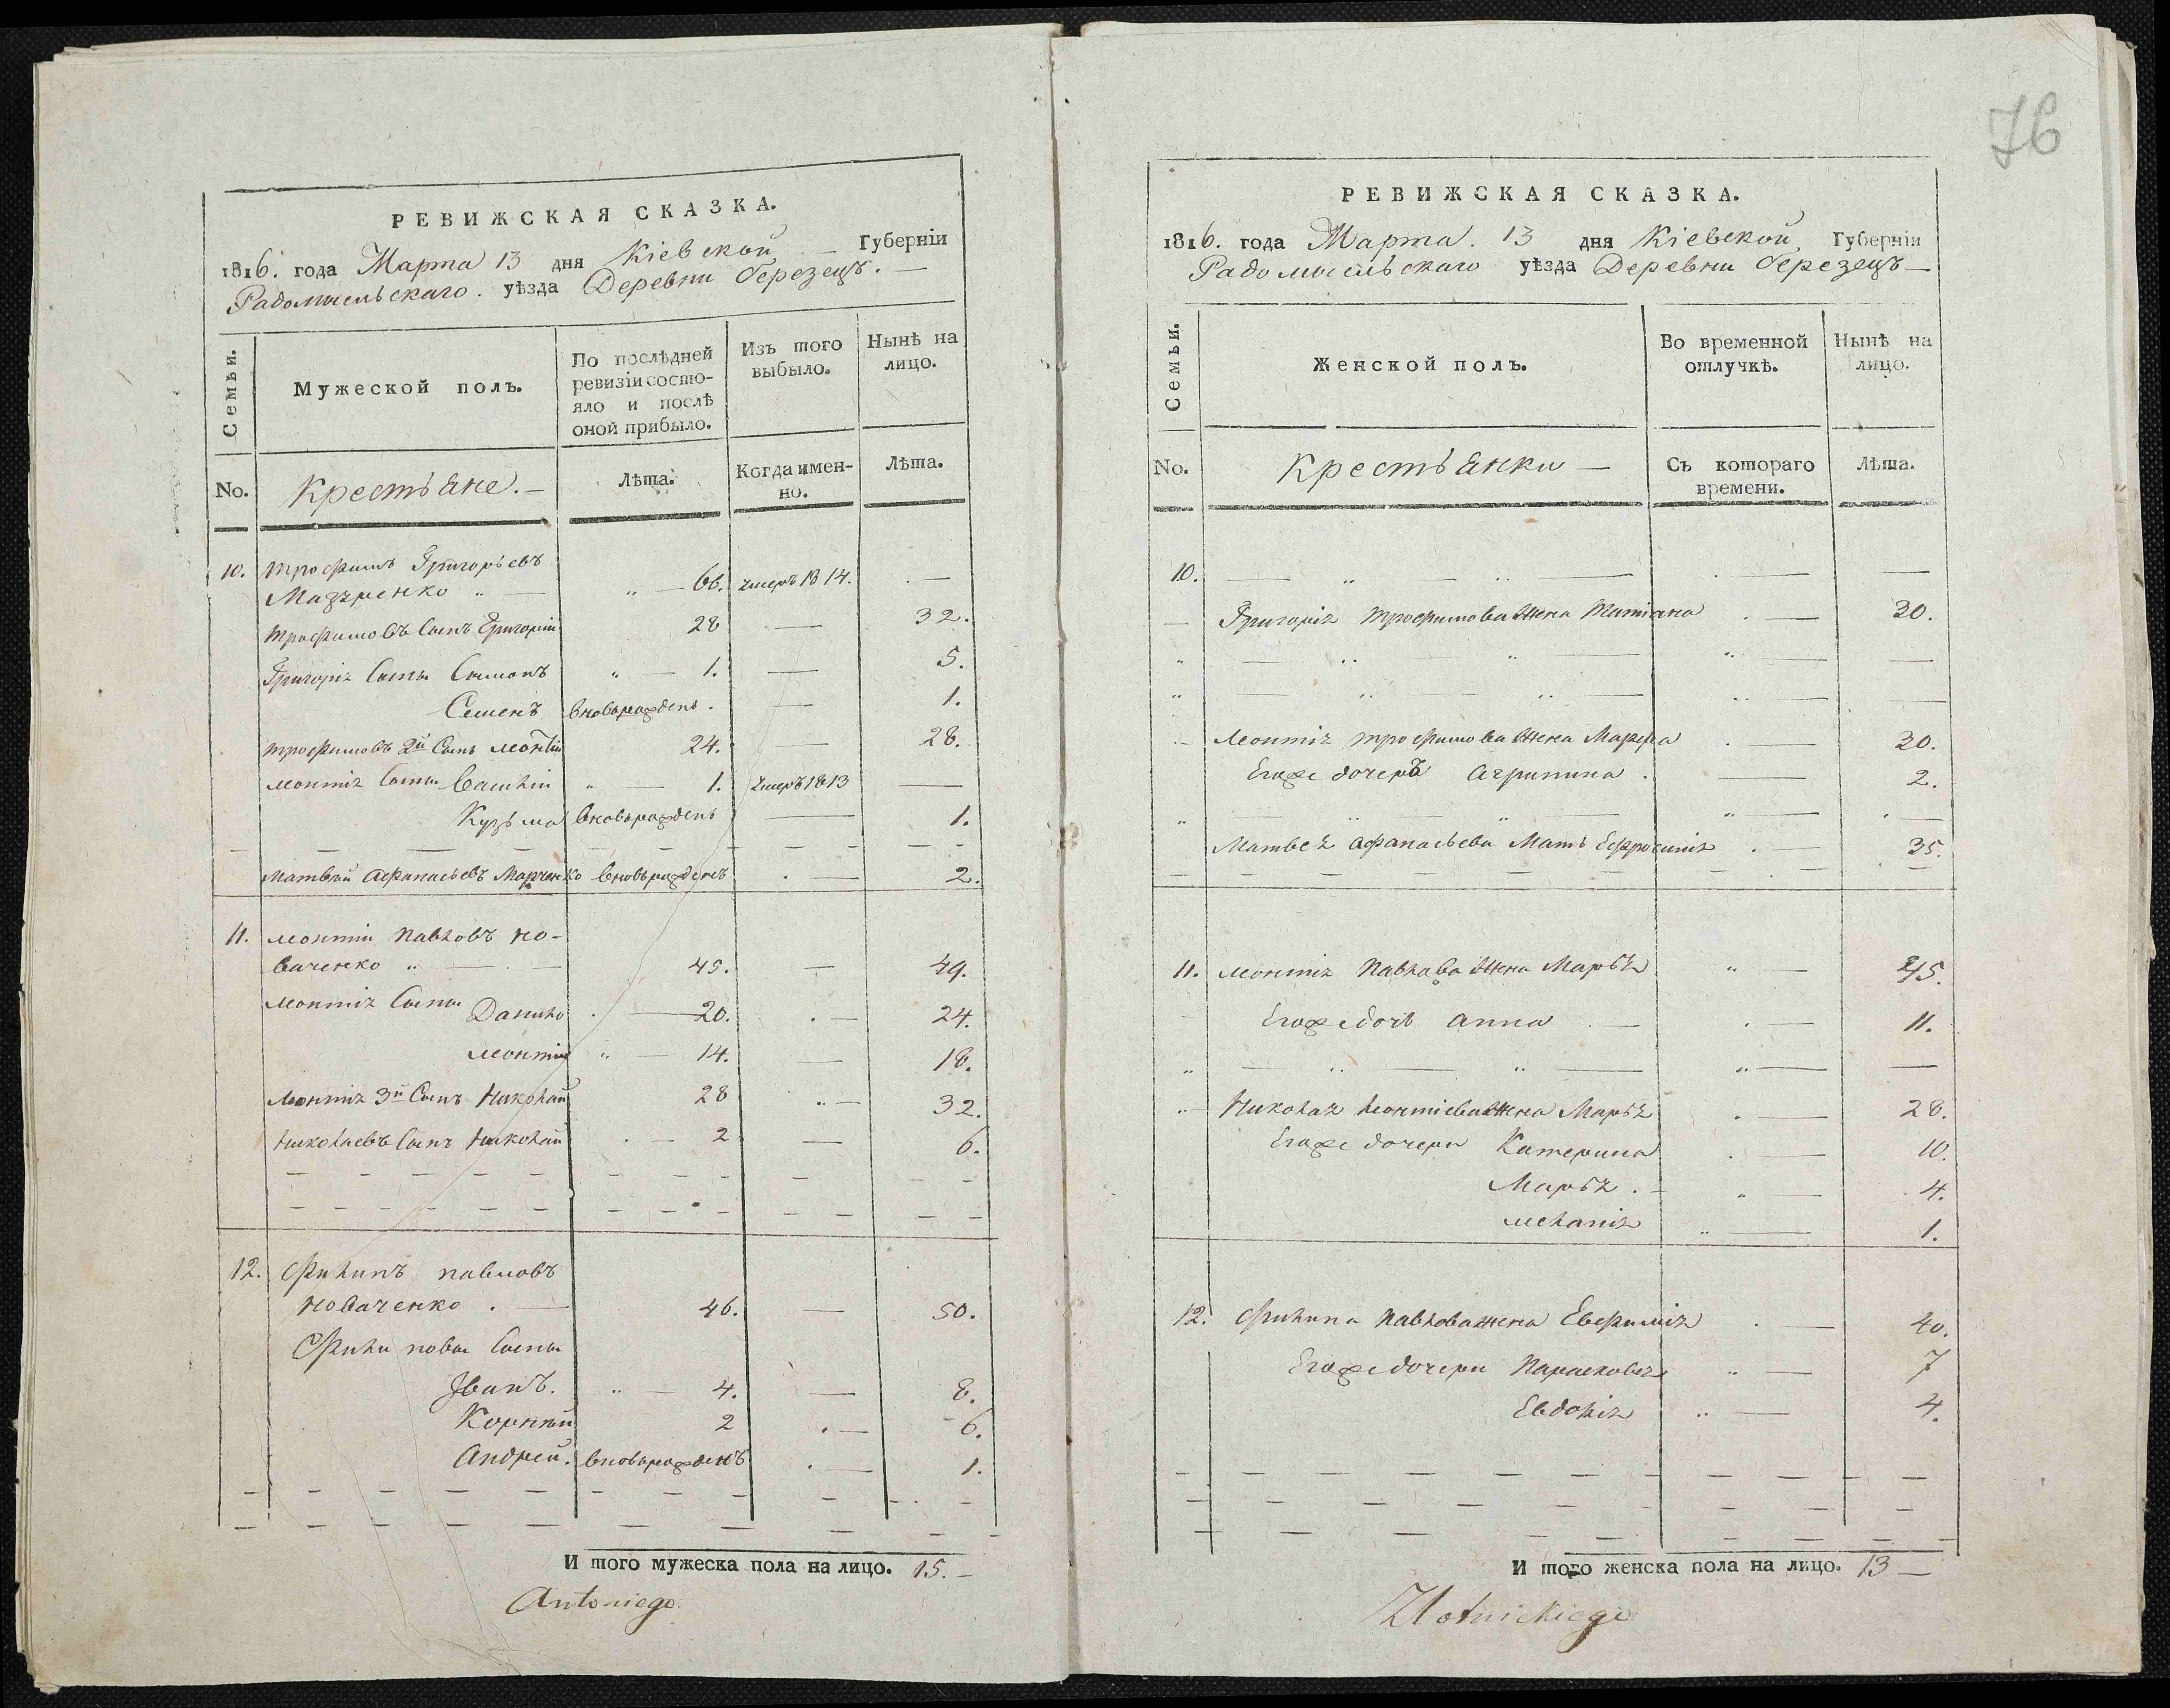 76
РЕВИЖСКАЯ СКАЗКА.
1816. года Марта 13 дня Кіевской Губерніи
Радомысльскаго. уѣзда Деревни березецъ.
Семьи.
Мужеской полъ.
По послѣдней
ревизіи состо-
яло и послѣ
оной прибыло.
Изъ того
выбыло.
Нынѣ на
лицо.
No.
Крестьяне.
Лѣта.
Когда имен-
но.
Лѣта.
10. трофимъ Григорьевъ
— 66. умеръ 1814. —
трофимовъ Сынъ Григорій 28 — 32.
Григорія Сыны 1. — 5.
Семенъ вновьрожденъ. — 1.
трофимовъ 2й Сынъ леонтій 24. — 28.
леонтія Сыны Василій 1. умеръ 1813 —
Кузьма вновьрожденъ — 1.
матвѣй афанасьевъ Марченко вновьрожденъ — 2.
11. леонтій павловъ но-
ваченко 45. — 49.
леонтія Сыны Данило 20. — 24.
леонтій 14. — 18.
леонтія 3й Сынъ Николай 28 — 32.
Николаевъ Сынъ Николай 2 — 6.
12. Филипъ павловъ
новаченко 46. — 50.
Филиповы Сыны
Иванъ. 4. — 8.
Корнѣй 2 — 6.
Андрей. вновьрожденъ — 1.
И того мужеска пола на лицо. 15.
Antoniego
РЕВИЖСКАЯ СКАЗКА.
1816. года Марта. 13 дня Кіевской, Губерніи
Радомысльскаго уѣзда Деревни березецъ
Семьи.
Женской полъ.
Во временной
отлучкѣ.
Нынѣ на
лицо.
No.
Крестьянки
Съ котораго
времени.
Лѣта.
10.
Григорія трофимова жена татіана — 30.
Леонтія трофимова жена Марфа — 30.
Егоже дочерь Агрипина. — 2.
Матвея афанасьева Мать Ефросинія — 35.
11. леонтія павлова жена Марья — 45.
Егоже дочь анна — 11.
Николая леонтіева жена Марья — 28.
Егоже дочери Катерина — 10.
Марья. — 4.
меланія — 1.
12. Филипа павлова жена Евфимія — 40.
Егоже дочери Парасковея — 7
Евдокія — 4.
И того женска пола на лицо. 13
Zlotnickiego